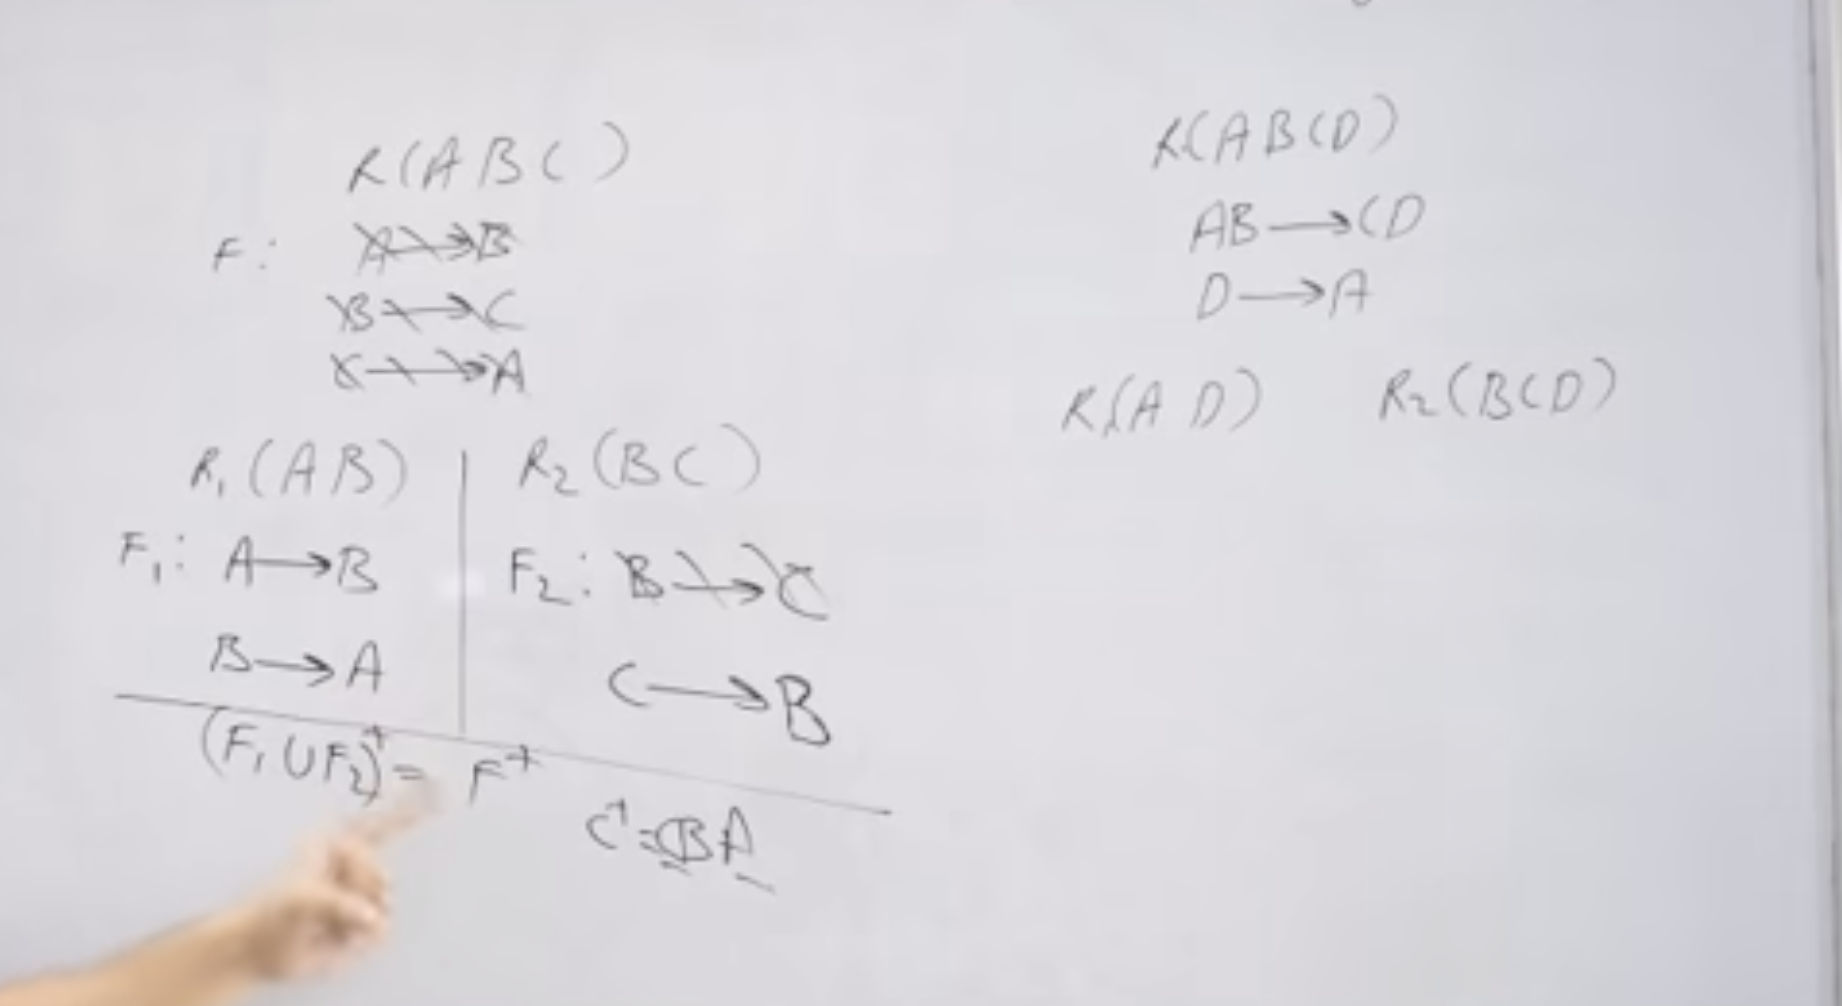 R(ABC)
F: A→B
B→C
C→A
R₁(AB)
F₁: A→B
B→A
R₂(BC)
F₂: B→C
C→B
(F₁∪F₂)⁺= F⁺
C⁺=CBA
R(ABCD)
AB→CD
D→A
R₁(AD) R₂(BCD)